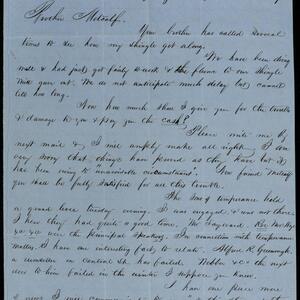 Brother Metcalf.
Your brother has called several
times to see how my shingle got along.
We have been doing
well & had just got fairly to work & the plane to our shingle
mill gave out. We do not anticipate much delay but cannot
tell how long.
Now how much shall I give you for the trouble
& damage to you & pay you the cash?
Please write me by
next mail & I will amply make all right. I am
very sorry that things have proved as they have but it
has been owing to unavoidable circumstances.
you shall be fully satisfied for all this trouble.
The Sons of temperance hold
a grand levee tuesday evening. I was engaged & was not there
I hear they had quite a good time. Mr. Hayward. Rev. Mr.
were the principal speakers. In connection with temperance
matters, I have an interesting fact to relate. Alfred R. Greenough,
a rumseller on Central St. has failed. Webber & Co the next
door to him failed in the winter I suppose you know.
I have one piece more